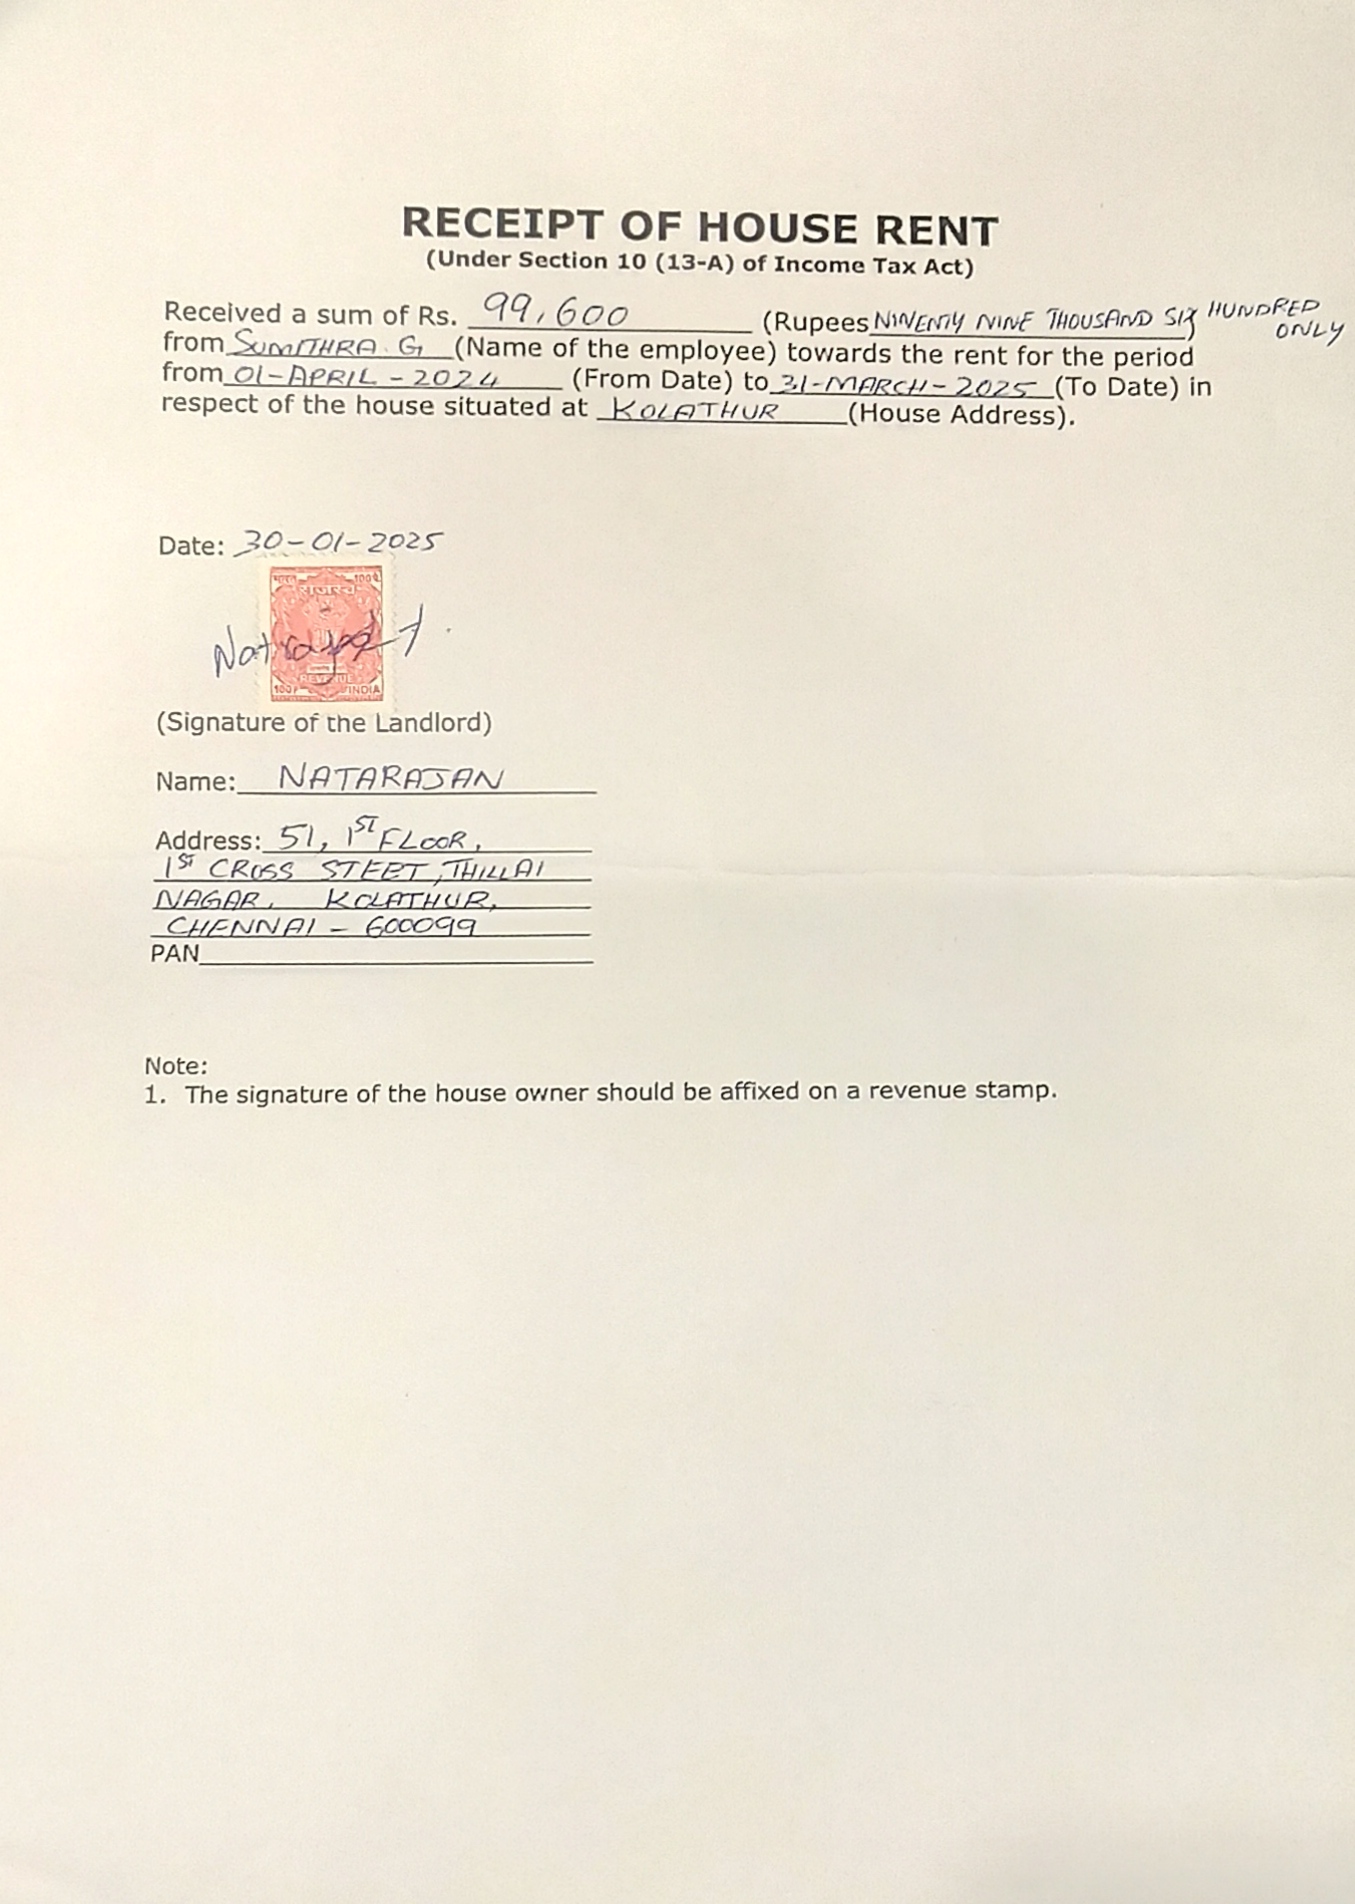 RECEIPT OF HOUSE RENT
(Under Section 10 (13-A) of Income Tax Act)
Received a sum of Rs. 99,600 (Rupees NINENTY NINE THOUSAND SIX HUNDRED ONLY)
from SUMITHRA G (Name of the employee) towards the rent for the period
from 01-APRIL-2024 (From Date) to 31-MARCH-2025 (To Date) in
respect of the house situated at KOLATHUR (House Address).
Date: 30-01-2025
राजस्व
REVENUE
INDIA
(Signature of the Landlord)
Name: NATARAJAN
Address: 51, 1ST FLOOR,
1ST CROSS STEET, THILLAI
NAGAR, KOLATHUR,
CHENNAI - 600099
PAN
Note:
1. The signature of the house owner should be affixed on a revenue stamp.